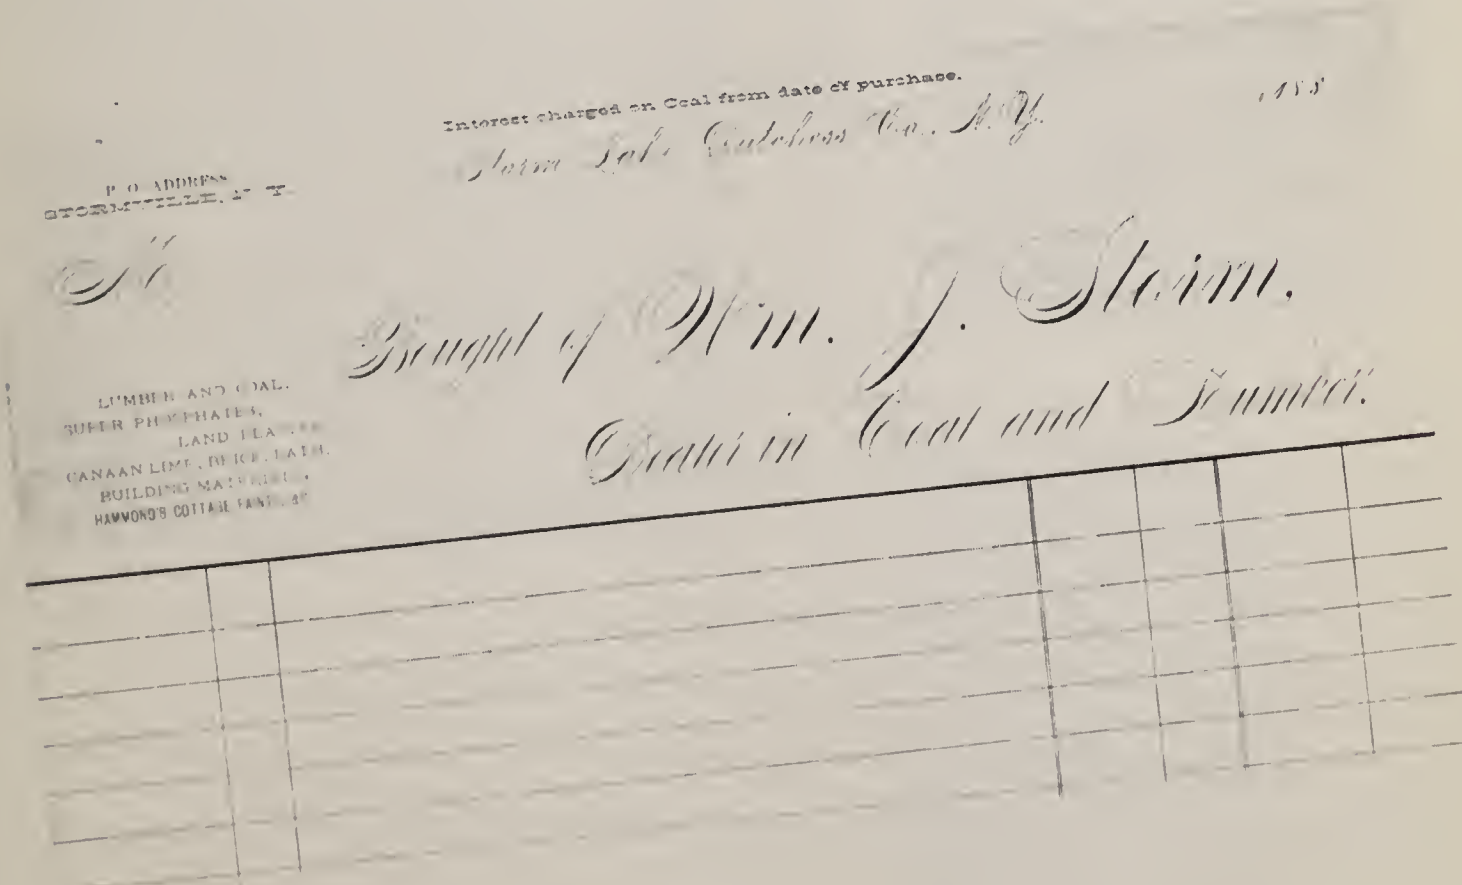 Interest charged on Coal from date of purchase.
Storm Lake Dutchess Co., N.Y. 188
P. O. ADDRESS
STORMVILLE, N. Y.
M
Bought of Wm. J. Storm,
Dealer in Coal and Lumber.
LUMBER AND COAL,
SUPER PHOSPHATES,
LAND PLASTER
CANAAN LIME, BRICK, LATH,
BUILDING MATERIALS,
HAMMOND'S COTTAGE PAINT, &c